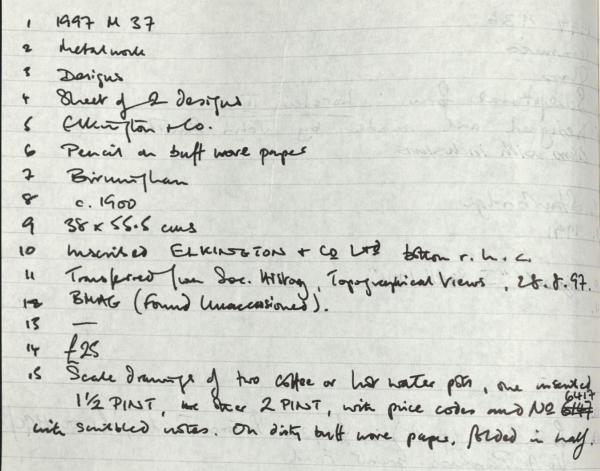 1 1997 M 37
2 Metalwork
3 Designs
4 Sheet of 2 designs
5 Elkington + Co.
6 Pencil on buff wove paper
7 Birmingham
8 c. 1900
9 38 x 55.5 cms
10 Inscribed ELKINGTON + Co Ltd bottom r. h. c.
11 Transferred from Soc. History, Topographical Views, 28.8.97.
12 BMAG (Found Unaccessioned).
13 —
14 £25
15 Scale drawings of two coffee or hot water pots, one inscribed
1½ PINT, the other 2 PINT, with price codes and No 6417
with scribbled notes. On dirty buff wove paper, folded in half.